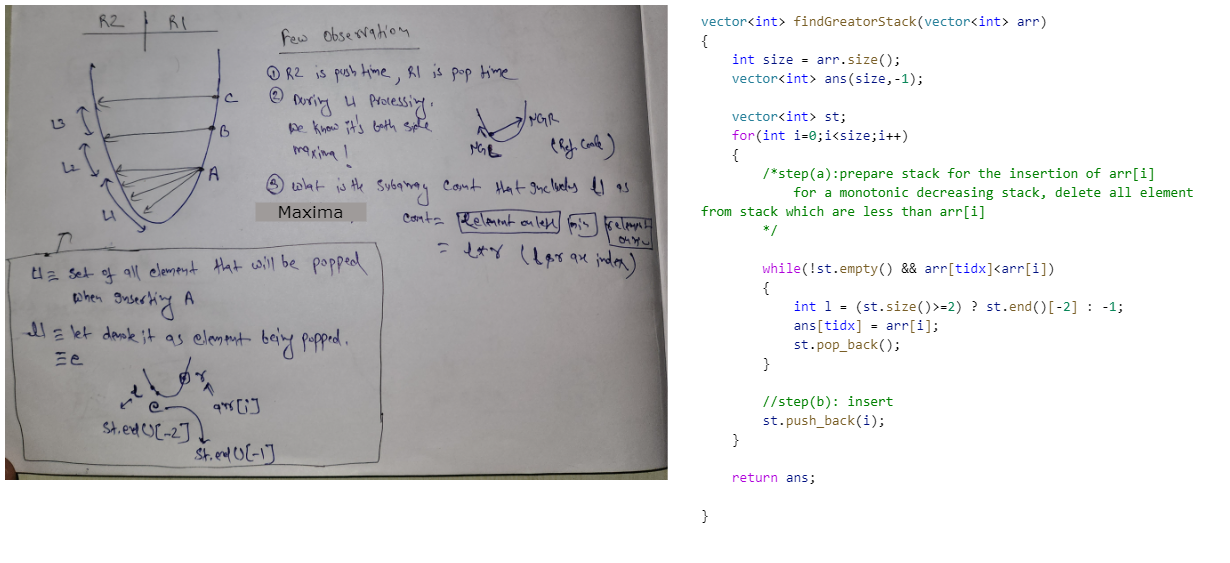 R2 R1
C
B
A
L3
L2
L1
Few Observation
① R2 is push time, R1 is pop time
② During L1 Processing.
we know it's both side
maxima!
NGL
NGR
(Ref. Code)
③ what is the subarray count that includes l1 as
Maxima
count =
= l*r (l & r are index)
L1 ≡ set of all element that will be popped
when inserting A
l1 ≡ let denote it as element being popped.
≡ e
l
r
e
arr[i]
st.end()[-2]
st.end()[-1]
vector<int> findGreatorStack(vector<int> arr)
{
int size = arr.size();
vector<int> ans(size,-1);
vector<int> st;
for(int i=0;i<size;i++)
{
/*step(a):prepare stack for the insertion of arr[i]
for a monotonic decreasing stack, delete all element
from stack which are less than arr[i]
*/
while(!st.empty() && arr[tidx]<arr[i])
{
int l = (st.size()>=2) ? st.end()[-2] : -1;
ans[tidx] = arr[i];
st.pop_back();
}
//step(b): insert
st.push_back(i);
}
return ans;
}